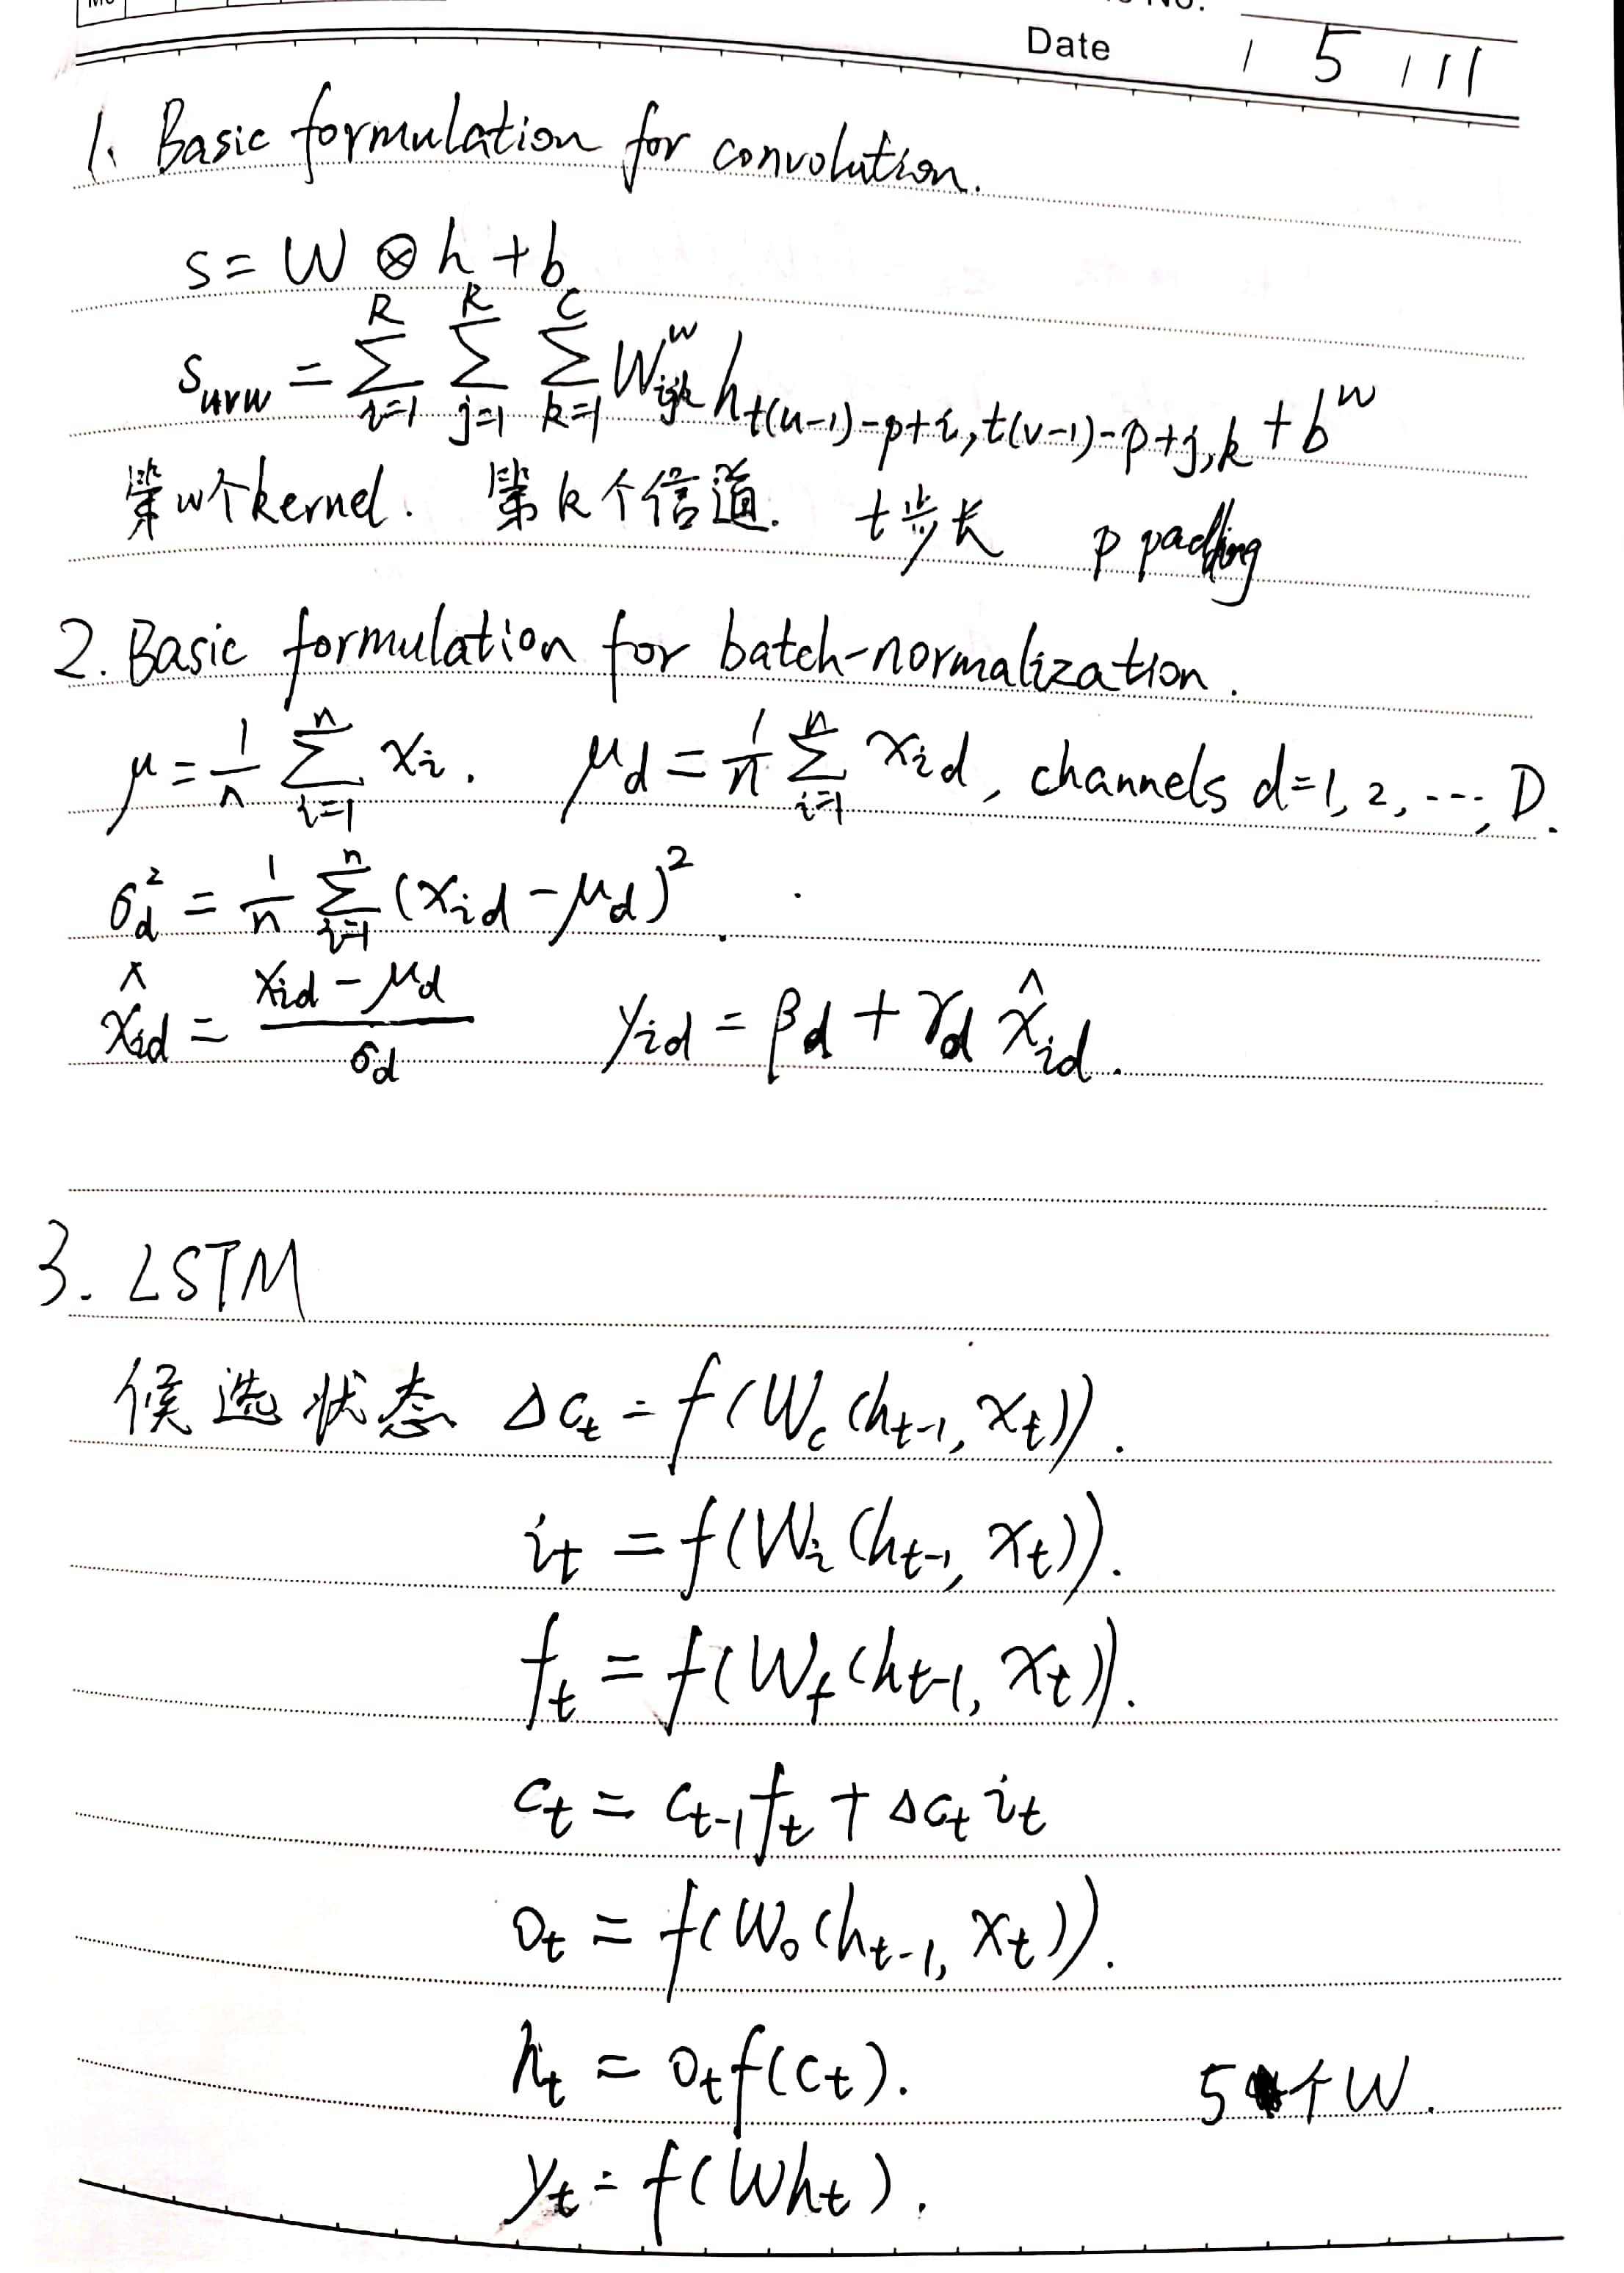 Date 5 11
1、Basic formulation for convolution.
s = W ⊗ h + b
s_{uvw} = \sum_{i=1}^{R} \sum_{j=1}^{R} \sum_{k=1}^{C} W_{ijk}^{w} h_{t(u-1)-p+i, t(v-1)-p+j, k} + b^{w}
第w个kernel. 第k个信道. t步长 p padding
2. Basic formulation for batch-normalization.
μ = \frac{1}{n} \sum_{i=1}^{n} x_i. μ_d = \frac{1}{n} \sum_{i=1}^{n} x_{id}, channels d=1, 2, ..., D.
σ_d^2 = \frac{1}{n} \sum_{i=1}^{n} (x_{id} - μ_d)^2.
\hat{x}_{id} = \frac{x_{id} - μ_d}{σ_d} y_{id} = β_d + γ_d \hat{x}_{id}.
3. LSTM
候选状态 Δc_t = f(W_c(h_{t-1}, x_t)).
i_t = f(W_i(h_{t-1}, x_t)).
f_t = f(W_f(h_{t-1}, x_t)).
c_t = c_{t-1} f_t + Δc_t i_t
o_t = f(W_o(h_{t-1}, x_t)).
h_t = o_t f(c_t). 5个W.
y_t = f(Wh_t).